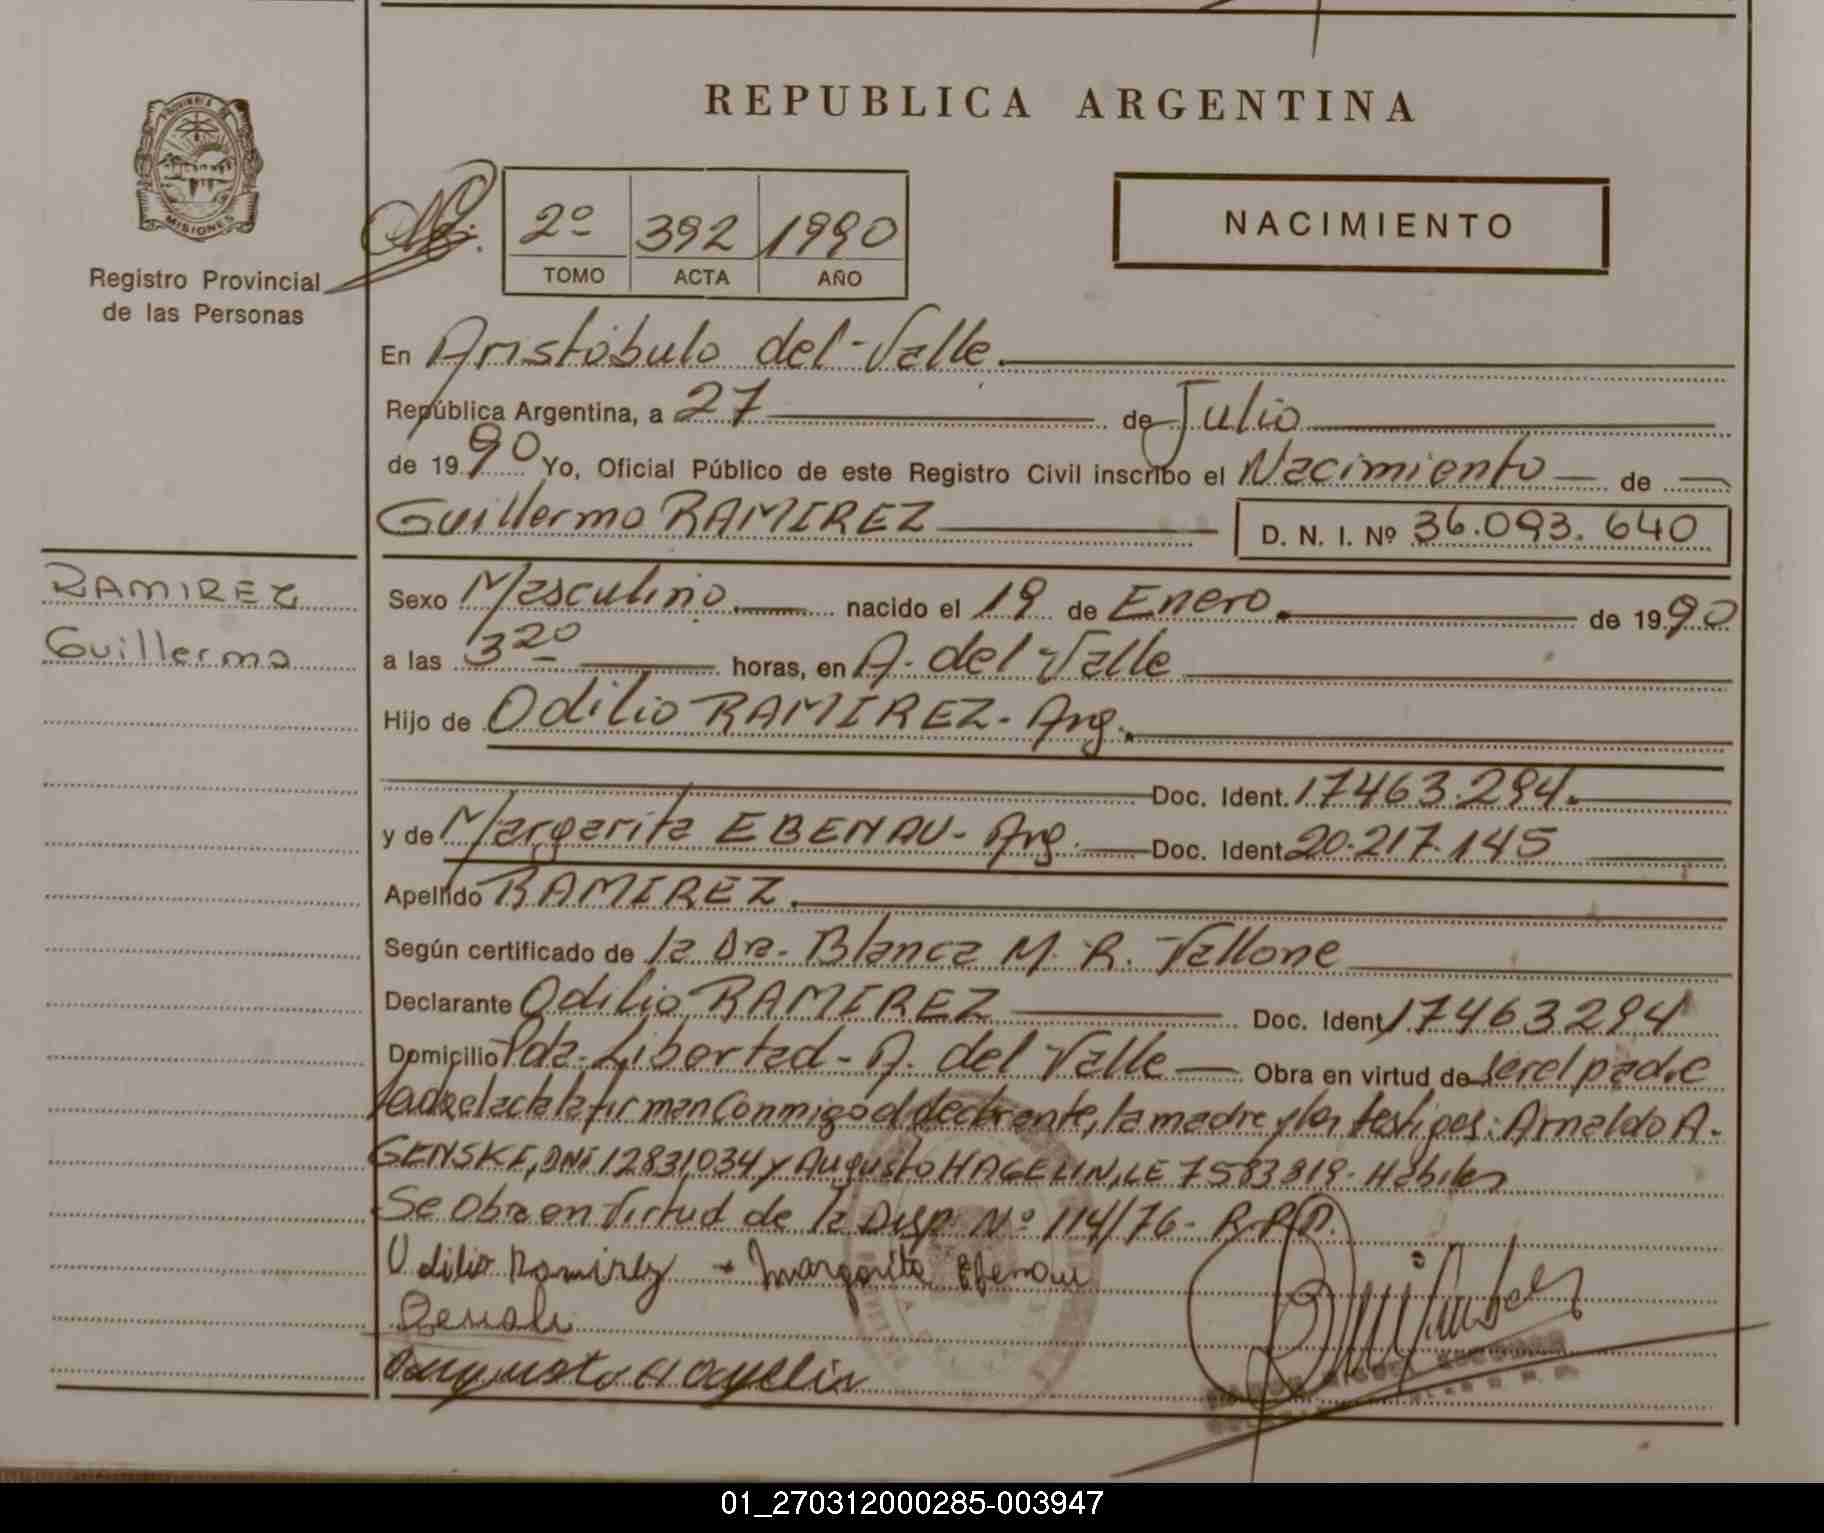 REPUBLICA ARGENTINA
PROVINCIA DE
MISIONES
Registro Provincial
de las Personas
2º 392 1990
TOMO ACTA AÑO
NACIMIENTO
En Aristóbulo del Valle.
República Argentina, a 27 de Julio
de 1990 Yo, Oficial Público de este Registro Civil inscribo el Nacimiento de
Guillermo RAMIREZ D. N. I. Nº 36.093.640
RAMIREZ
Guillermo
Sexo Masculino nacido el 19 de Enero. de 1990
a las 3 20 horas, en A. del Valle
Hijo de Odilio RAMIREZ - Arg.
Doc. Ident. 17463.294.
y de Margarita EBENAU - Arg. Doc. Ident. 20.217.145
Apellido RAMIREZ.
Según certificado de la Dra. Blanca M. R. Vallone
Declarante Odilio RAMIREZ Doc. Ident. 17463294
Domicilio Pda. Libertad - A. del Valle Obra en virtud de ser el padre
el acta la firman conmigo el declarante, la madre y los testigos: Arnaldo A.
GENSKE, DNI 12831034 y Augusto HAGELIN, LE 7583819 - Hábiles
Se obra en virtud de la Disp. Nº 114/76 - R.P.P.
Odilio Ramirez - Margarita Ebenau
Augusto Hagelin
01_270312000285-003947